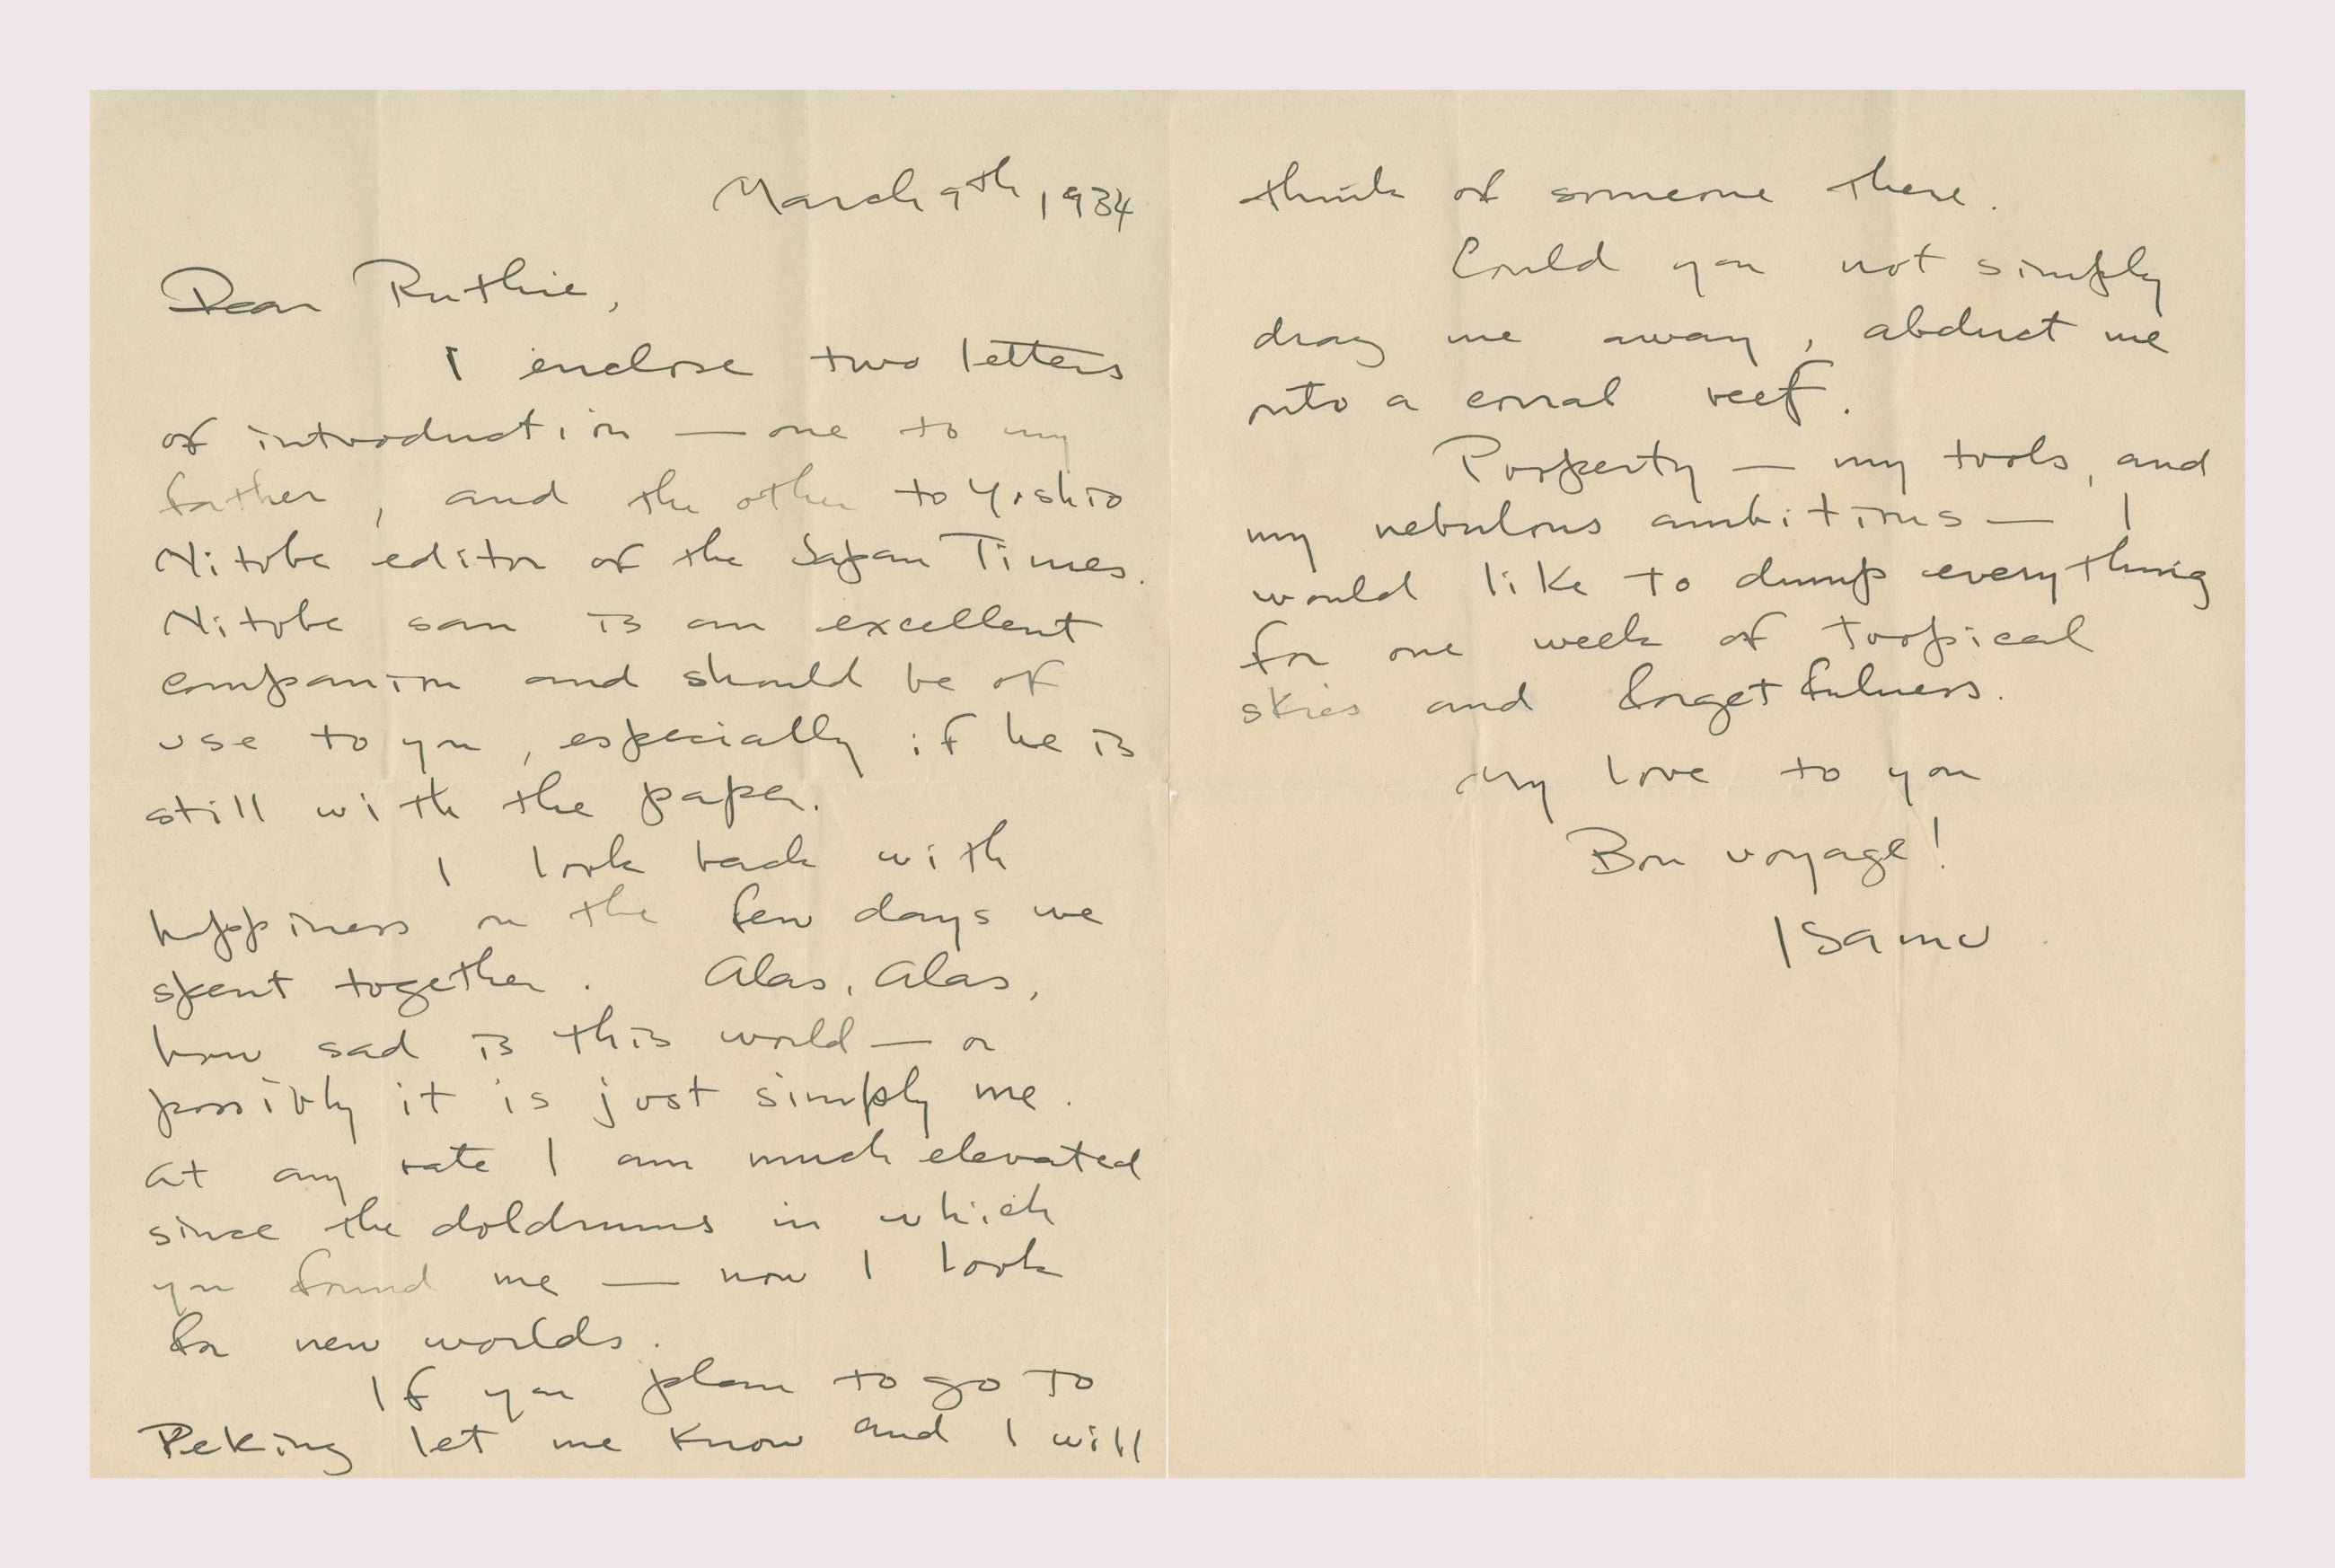 March 9th, 1934
Dear Ruthie,
I enclose two letters
of introduction — one to my
father, and the other to Yoshio
Nitobe editor of the Japan Times.
Nitobe san is an excellent
companion and should be of
use to you, especially if he is
still with the paper.
I look back with
happiness on the few days we
spent together. Alas, Alas,
how sad is this world — or
possibly it is just simply me.
At any rate I am much elevated
since the doldrums in which
you found me — now I look
for new worlds.
If you plan to go to
Peking let me know and I will
think of someone there.
Could you not simply
drag me away, abduct me
onto a corral reef.
Porperty — my tools, and
my nebulous ambitions — I
would like to dump everything
for one week of toopical
skies and forgetfulness.
My love to you
Bon voyage!
Isamu